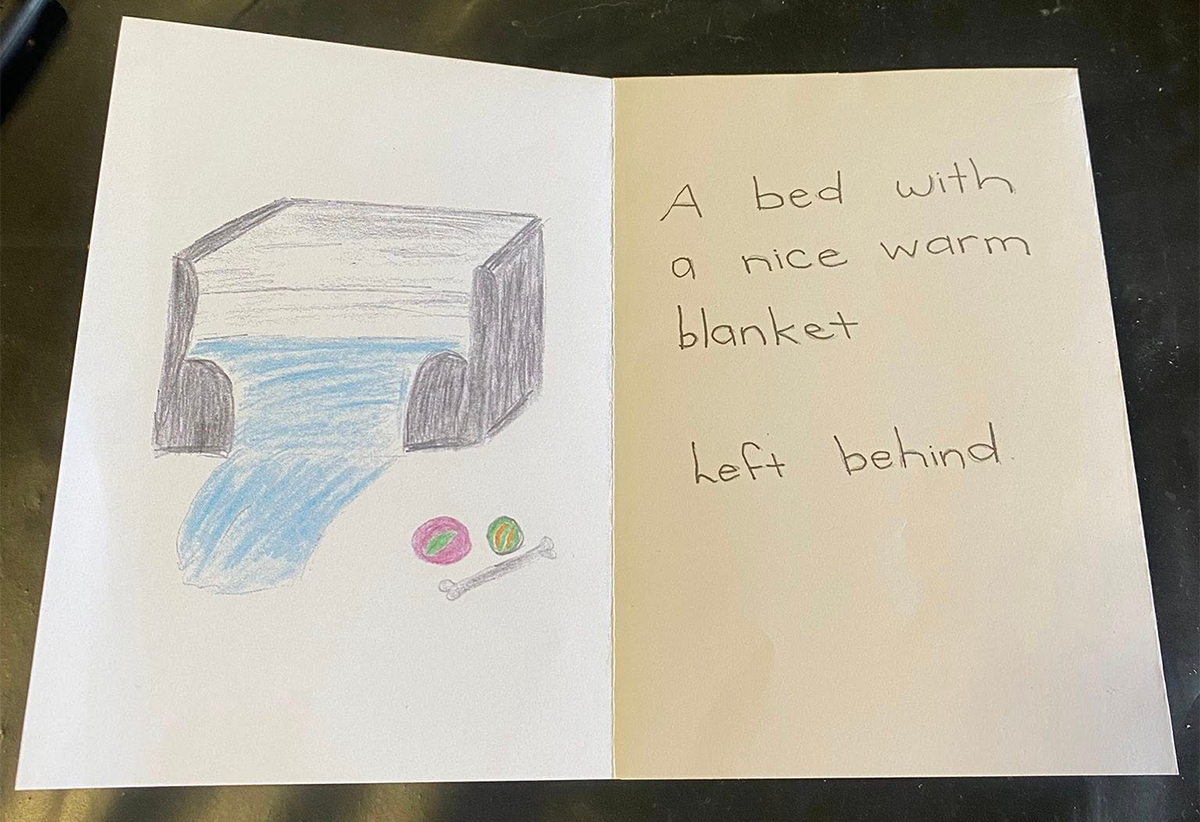 A bed with
a nice warm
blanket
Left behind.